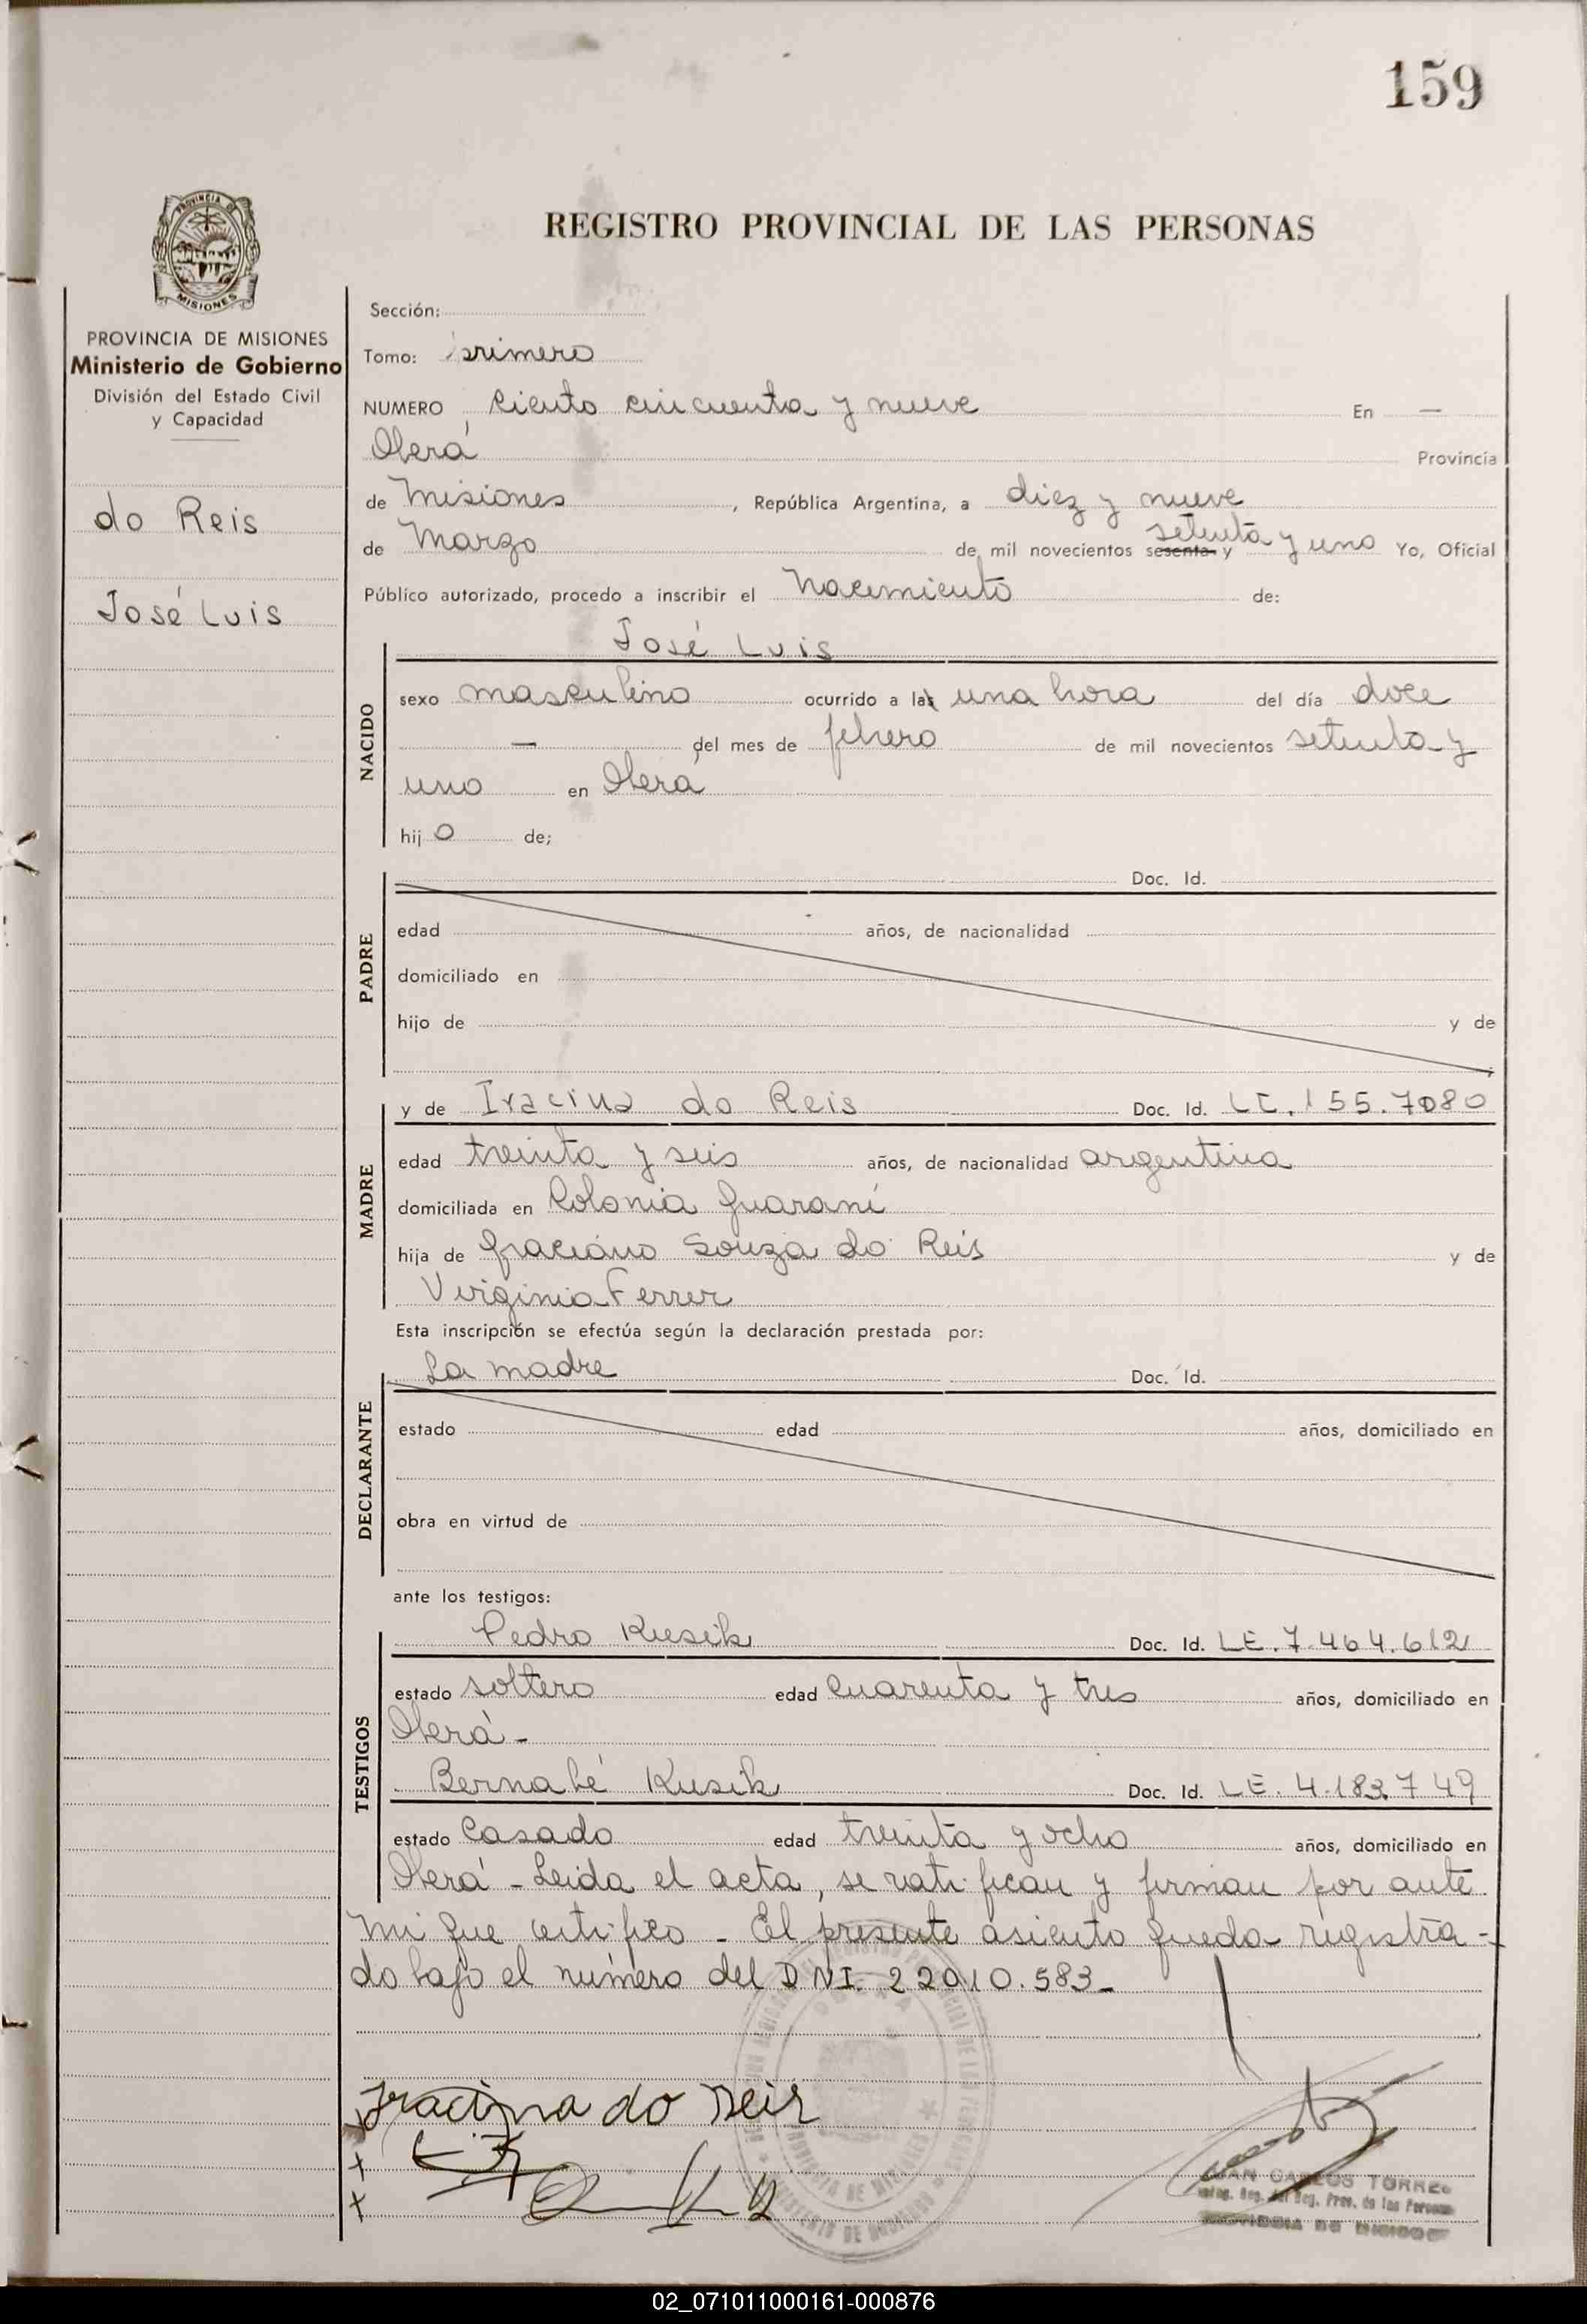 159
PROVINCIA DE
MISIONES
REGISTRO PROVINCIAL DE LAS PERSONAS
PROVINCIA DE MISIONES
Ministerio de Gobierno
División del Estado Civil
y Capacidad
do Reis
José Luis
Sección:
Tomo: primero
NUMERO Ciento cincuenta y nueve En —
Oberá Provincia
de Misiones, República Argentina, a diez y nueve
de Marzo de mil novecientos sesenta y setenta y uno Yo, Oficial
Público autorizado, procedo a inscribir el Nacimiento de:
José Luis
NACIDO
sexo masculino ocurrido a las una hora del día doce
— del mes de febrero de mil novecientos setenta y
uno en Oberá
hij o de;
PADRE
Doc. Id.
edad años, de nacionalidad
domiciliado en
hijo de y de
MADRE
y de Iracina do Reis Doc. Id. LC. 155.7080
edad treinta y seis años, de nacionalidad argentina
domiciliada en Colonia Guaraní
hija de Graciano Souza do Reis y de
Virginia Ferrer
Esta inscripción se efectúa según la declaración prestada por:
DECLARANTE
La madre Doc. Id.
estado edad años, domiciliado en
obra en virtud de
ante los testigos:
TESTIGOS
Pedro Kusik Doc. Id. LE. 7.464.612
estado soltero edad cuarenta y tres años, domiciliado en
Oberá -
Bernabé Kusik Doc. Id. LE. 4.183.749
estado Casado edad treinta y ocho años, domiciliado en
Oberá - Leida el acta, se ratifican y firman por ante
mi que certifico - El presente asiento queda registra-
do bajo el número del DNI. 22010.583-
Iracina do Reis
JUAN CARLOS TORRES
Reg. Prov. de las Personas
02_071011000161-000876